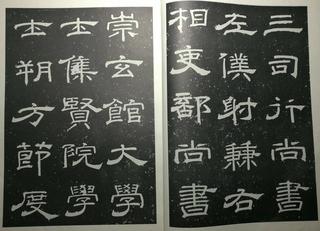 三司行尚書
左僕射兼右
相吏部尚書
崇玄館大學
士集賢院學
士朔方節度